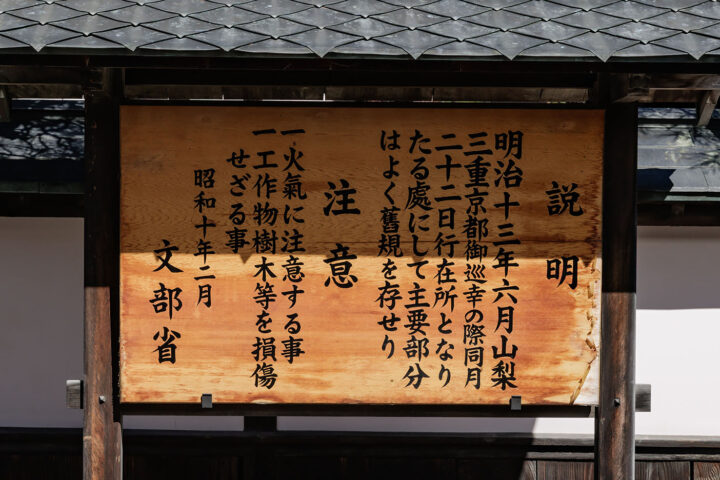 説明
明治十三年六月山梨
三重京都御巡幸の際同月
二十二日行在所となり
たる處にして主要部分
はよく舊規を存せり
注意
一火氣に注意する事
一工作物樹木等を損傷
せざる事
昭和十年二月
文部省